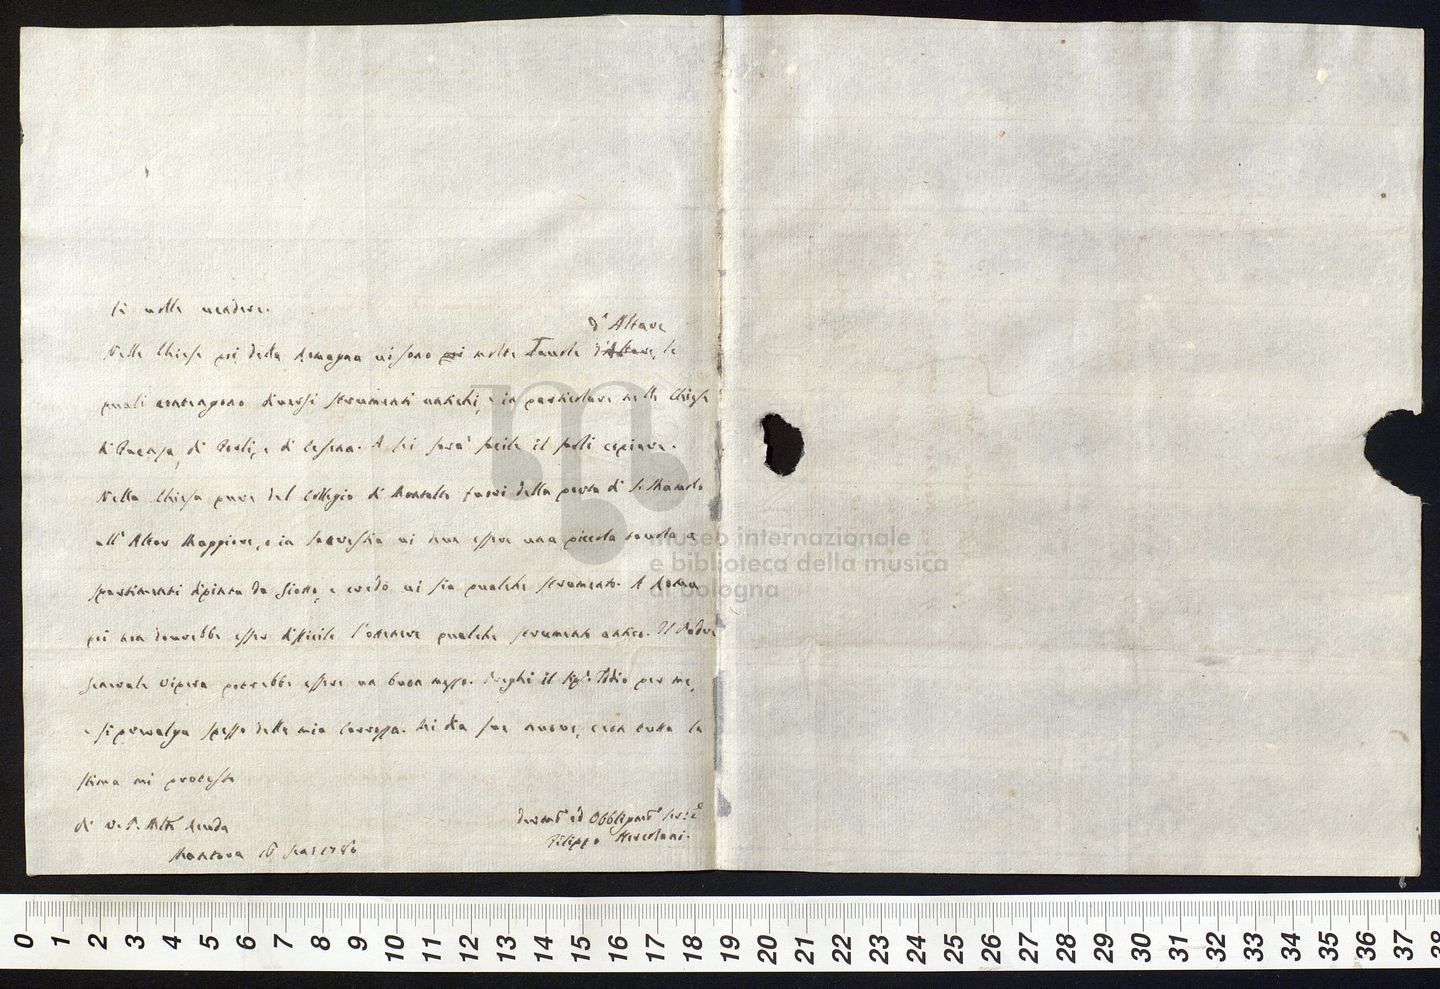 si molto vendere.
d'Altare
Nelle Chiese poi della Romagna vi sono molte Tavole le
quali contengono diversi strumenti antichi, e in particolare nelle Chiese
di Faenza, di Forlì, e di Cesena. A Lei sarà facile il farli copiare.
Nella Chiesa pure del Collegio di Montalto fuori della porta di S. Mamolo
all'Altar Maggiore, o in Sacrestia vi deve essere una piccola tavola a
spartimenti dipinta da Giotto, e credo vi sia qualche strumento. A Roma
poi non dovrebbe esser difficile l'ottenere qualche strumento antico. Il Padre
Generale Vipera potrebbe essere un buon mezzo. Preghi il Sig.e Iddio per me,
e si prevalga spesso della mia. Mi dia sue nuove, e con tutta la
stima mi protesto
di V. P. Mlto Reveda
Devmo ed Obbligmo Serre
Mantova 16 1780
Filippo Hercolani.
museo internazionale
e biblioteca della musica
di bologna
0 1 2 3 4 5 6 7 8 9 10 11 12 13 14 15 16 17 18 19 20 21 22 23 24 25 26 27 28 29 30 31 32 33 34 35 36 37 38